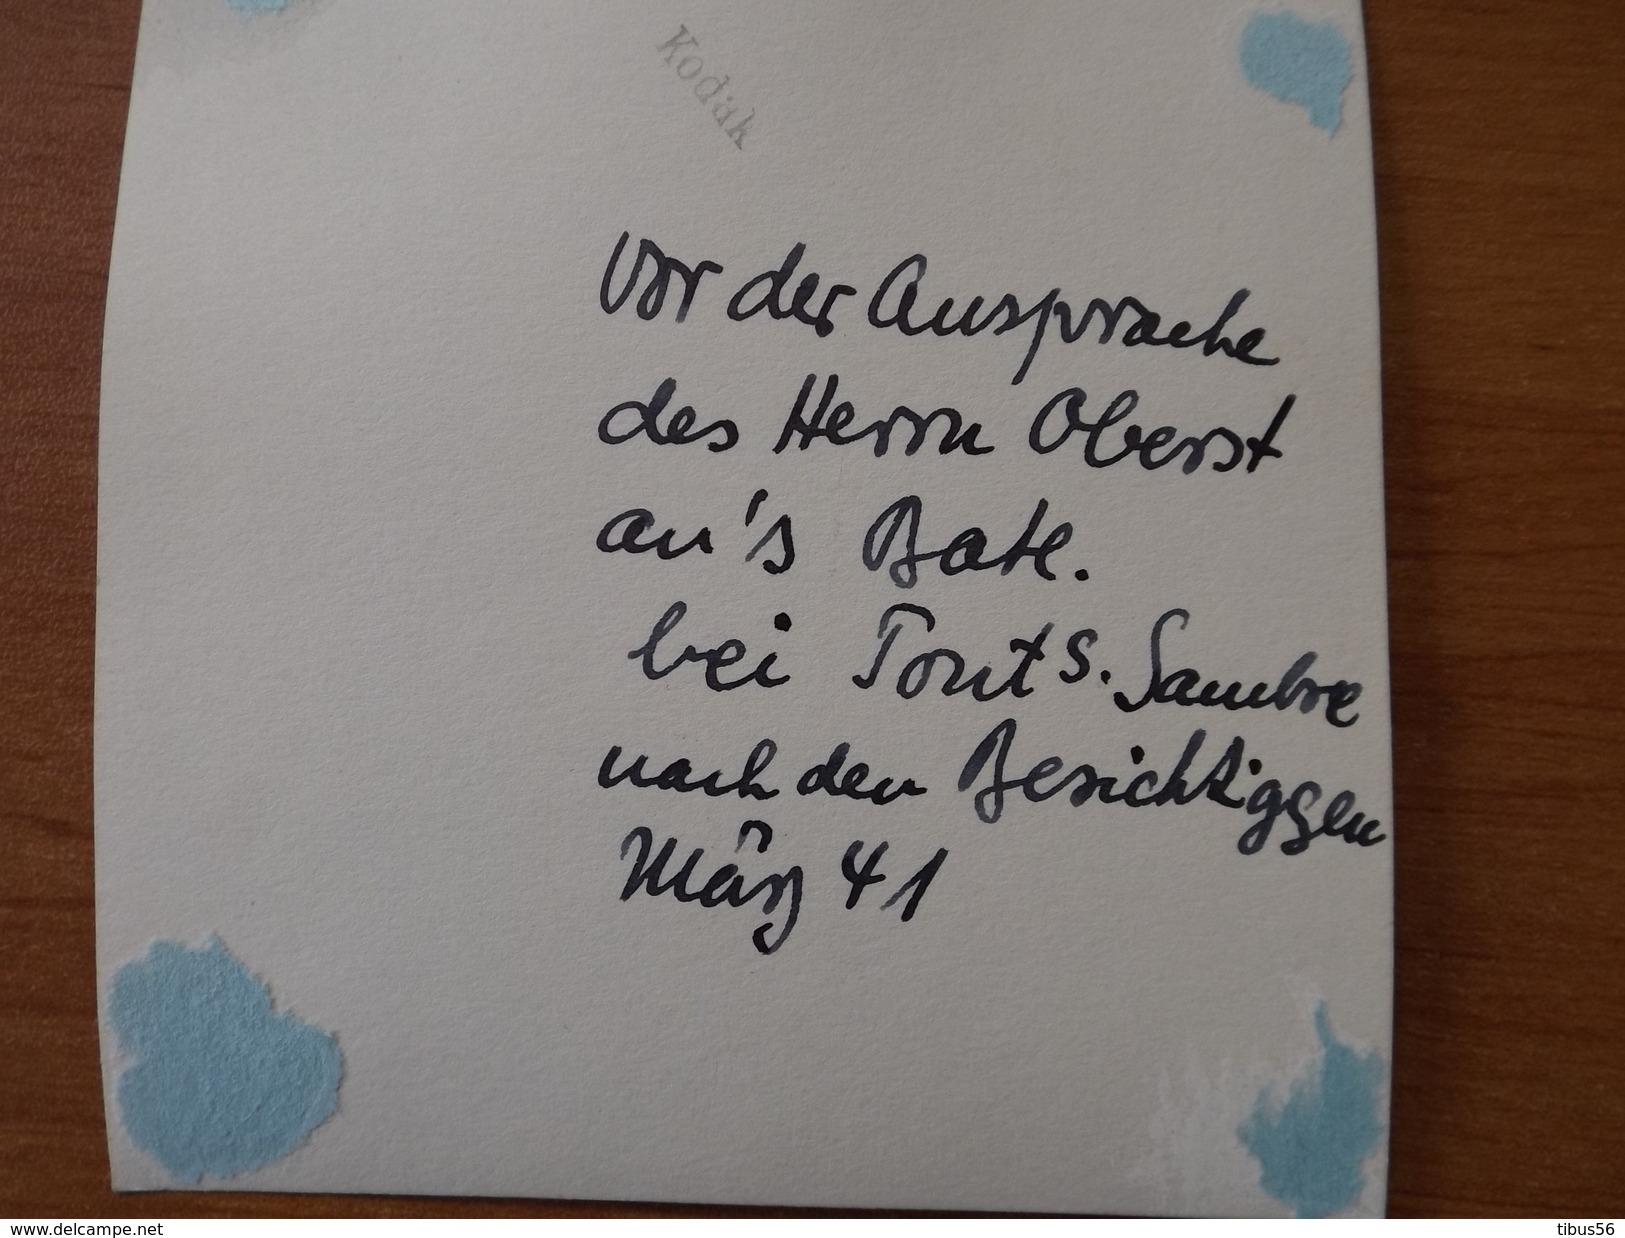 Kodak
Vor der Ansprache
des Herrn Oberst
an's Batl.
bei Pont s. Sambre
nach den Besichtiggen
März 41
www.delcampe.net
tibus56